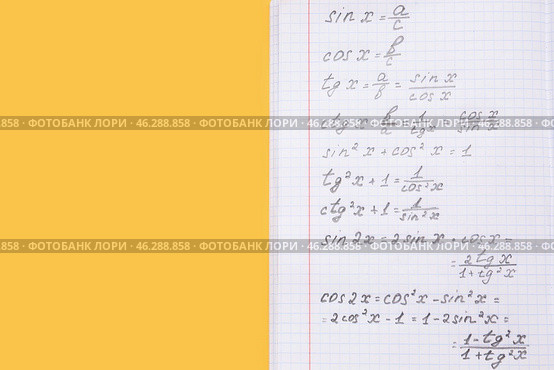 sin x = a/c
cos x = b/c
tg x = a/b = sin x/cos x
ctg x = b/a = 1/tg x = cos x/sin x
858 · ФОТОБАНК ЛОРИ · 46.288.858 · ФОТОБАНК ЛОРИ · 46.288.858 · ФОТОБАНК ЛОРИ · 46.288.858
sin² x + cos² x = 1
tg² x + 1 = 1/cos² x
ctg² x + 1 = 1/sin² x
sin 2x = 2 sin x · cos x =
858 · ФОТОБАНК ЛОРИ · 46.288.858 · ФОТОБАНК ЛОРИ · 46.288.858 · ФОТОБАНК ЛОРИ · 46.288.858
= 2 tg x/1 + tg² x
cos 2x = cos² x - sin² x =
= 2 cos² x - 1 = 1 - 2 sin² x =
= 1 - tg² x/1 + tg² x